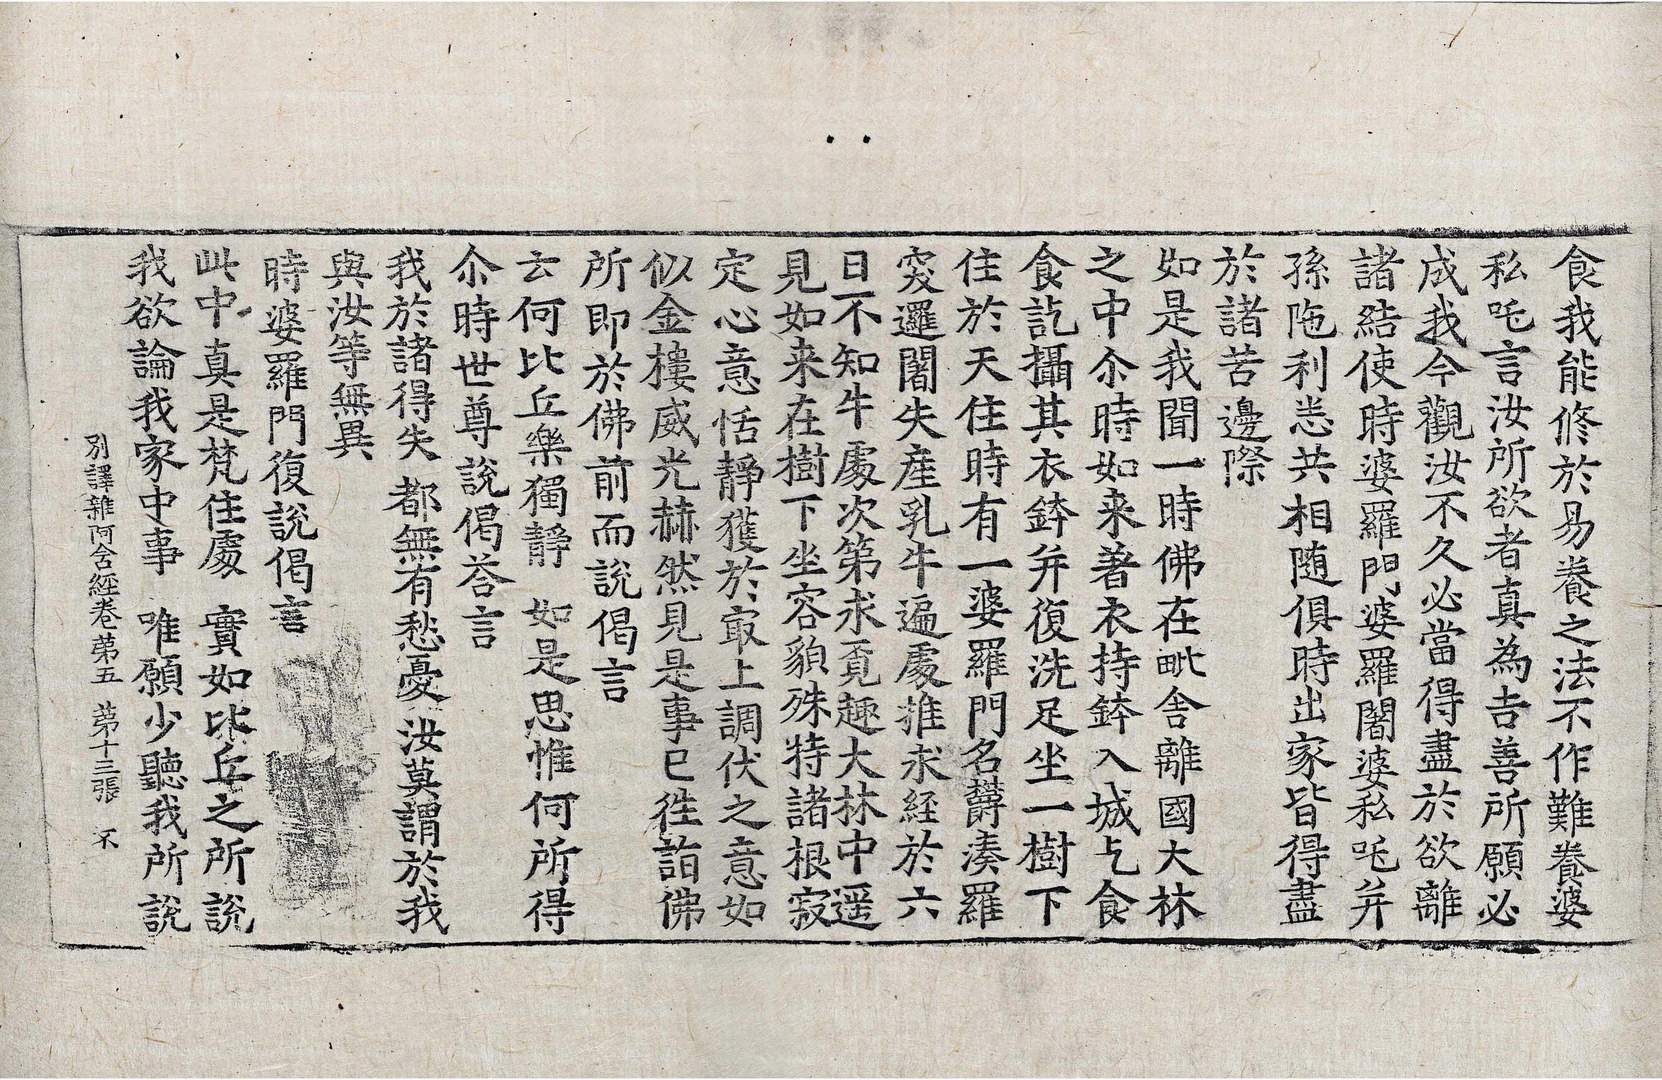 食我能修於易養之法不作難養婆
私吒言汝所欲者真為吉善所願必
成我今觀汝不久必當得盡於欲離
諸結使時婆羅門婆羅闍婆私吒并
孫陁利悉共相随俱時出家皆得盡
於諸苦邊際
如是我聞一時佛在毗舎離國大林
之中尒時如来著衣持鉢入城乞食
食訖攝其衣鉢并復洗足坐一樹下
住於天住時有一婆羅門名欝湊羅
突邏闍失產乳牛遍處推求經於六
日不知牛處次第求覓趣大林中遥
見如来在樹下坐容貌殊特諸根寂
定心意恬靜獲於㝡上調伏之意如
似金樓威光赫然見是事已徃詣佛
所即於佛前而說偈言
云何比丘樂獨靜　如是思惟何所得
尒時世尊說偈荅言
我於諸得失　都無有愁憂　汝莫謂於我
與汝等無異
時婆羅門復說偈言
此中真是梵住處　實如比丘之所說
我欲論我家中事　唯願少聽我所說
別譯雜阿含經卷第五　第十三張　不